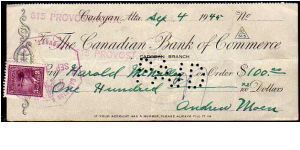 615 PROVO
Cadogan, Alta. Sep. 4 1945 No
The Canadian Bank of Commerce
CADOGAN, BRANCH
Pay Harold or Order $100.00
One Hundred xx/100 Dollars
PAID
Andrew Moen
IF YOUR ACCOUNT HAS A NUMBER, PLEASE ALWAYS FILL IT IN